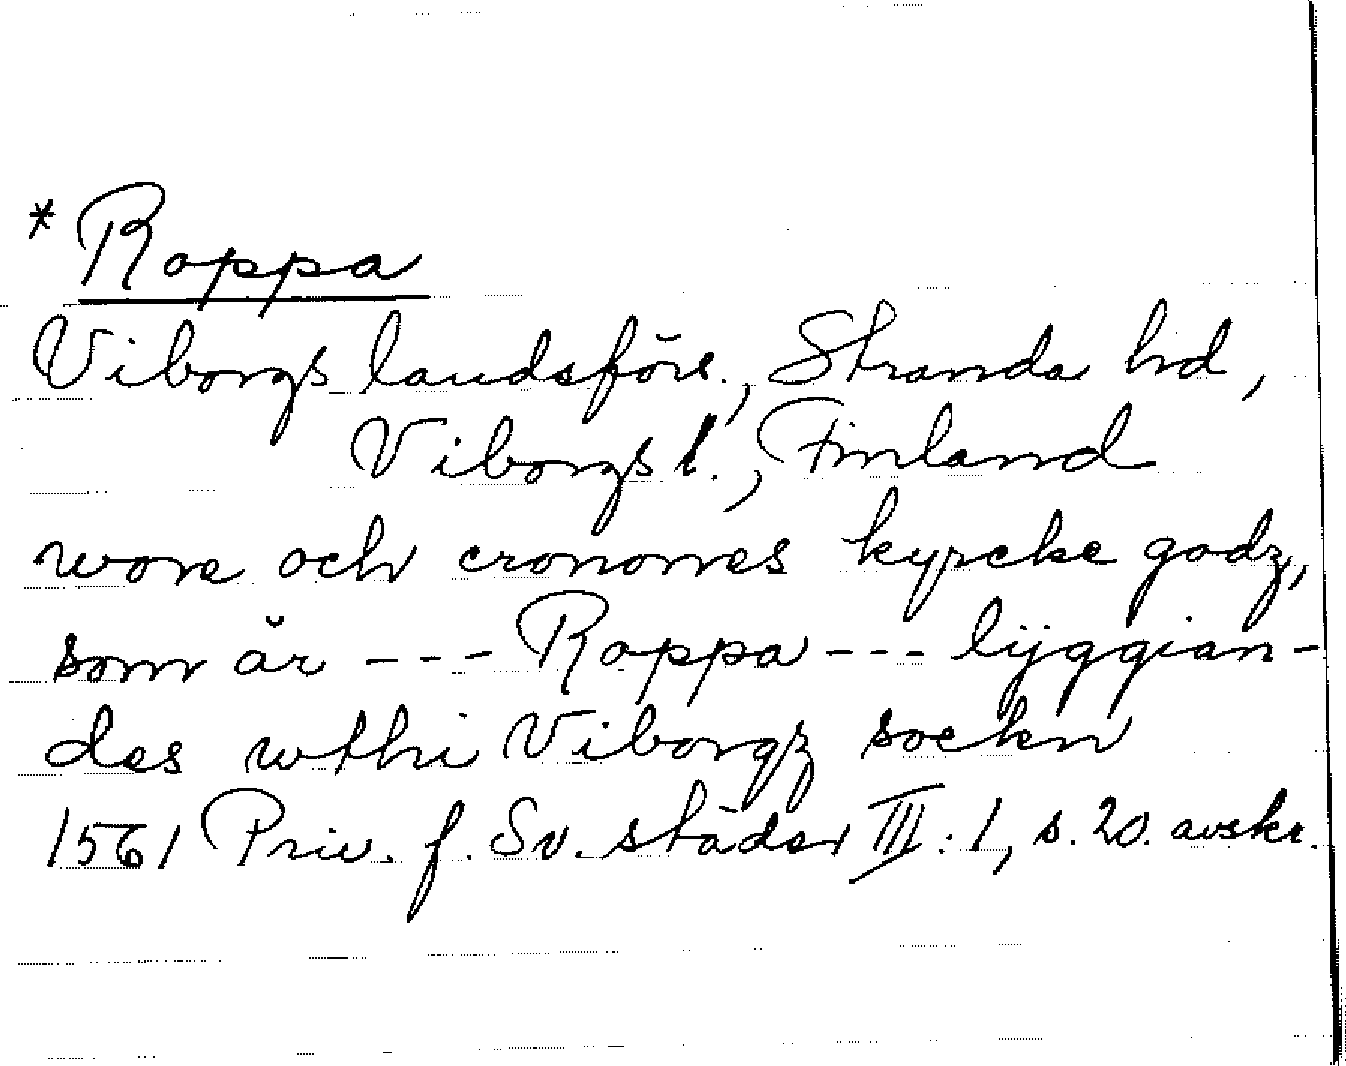 *Roppa
Viborgs landsförs., Stranda hd,
Viborgs l., Finland
wore och cronones kyrcke godz,
som är --- Roppa --- lÿggian-
des wthi Viborgz sockn
1561 Priv. f. Sv. städer III:1, s. 20. avskr.